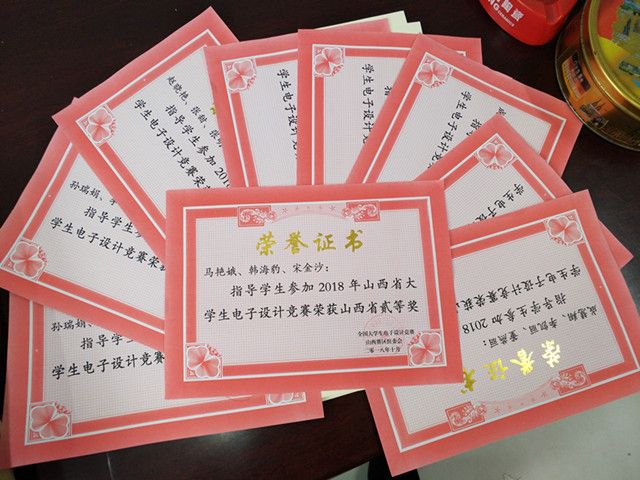 荣誉证书
马艳娥、韩海豹、宋金沙：
指导学生参加 2018 年山西省大
学生电子设计竞赛荣获山西省贰等奖
全国大学生电子设计竞赛
山西赛区组委会
二零一八年十月
赵晓艳、张
指导学生参加 2018
学生电子设计竞赛荣
孙瑞娟、
指导学生
学生电子设计竞赛荣获
孙瑞娟、
指导学
学生电子设计竞赛荣获
学生电
学生电
学生电子设
学生电子设
荣誉证书
指导学生参加 2018
学生电子设计竞赛荣获